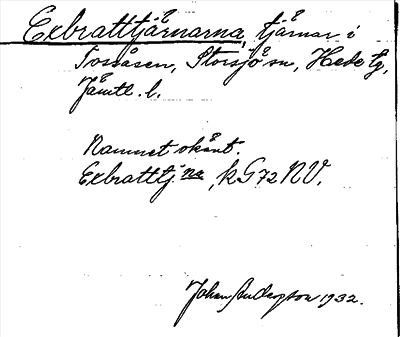 Exbrattjärnarna, tjärnar i
Tossåsen, Storsjö sn, Hede tg,
Jämtl. l.
Namnet okänt.
Exbrattj.na, kG72NV.
Johan Andersson 1932.